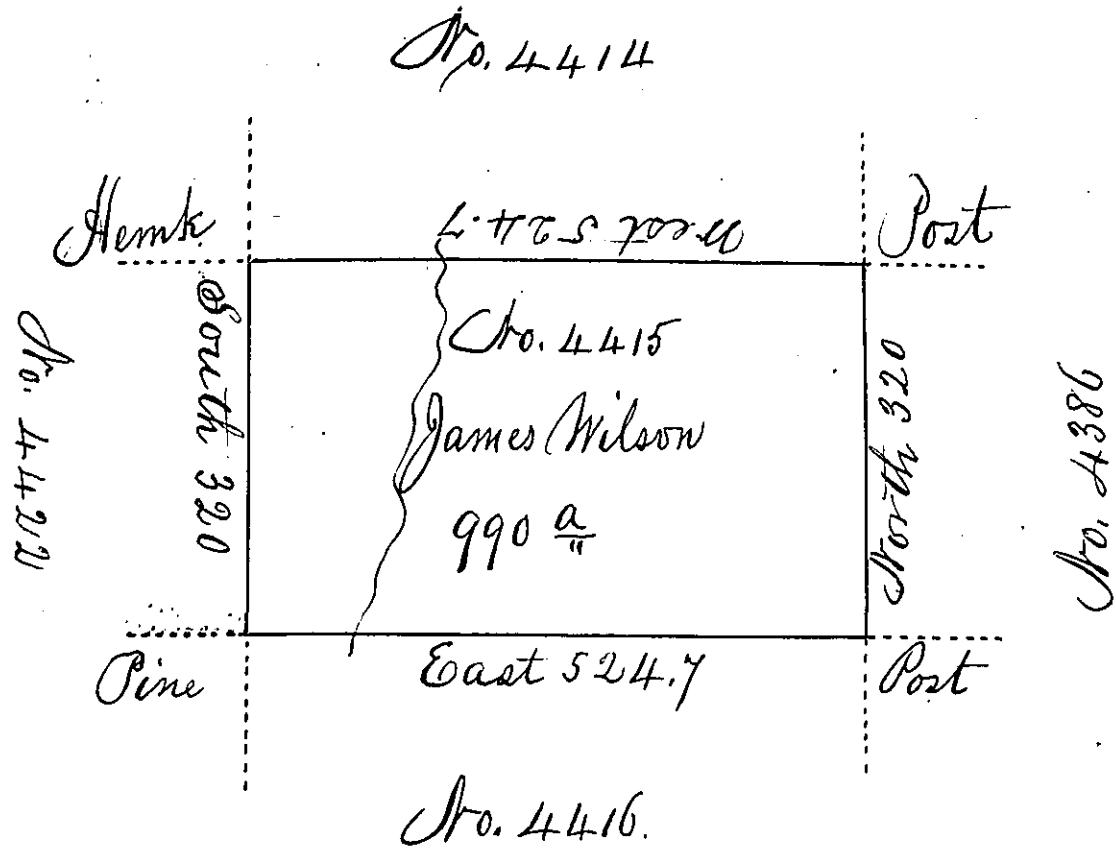 No. 4414
Hemk.
West 524.7
Post
No. 4422
South 320
No. 4415
James Wilson
990 a
North 320
No. 4386
Pine
East 524.7
Post
No. 4416.